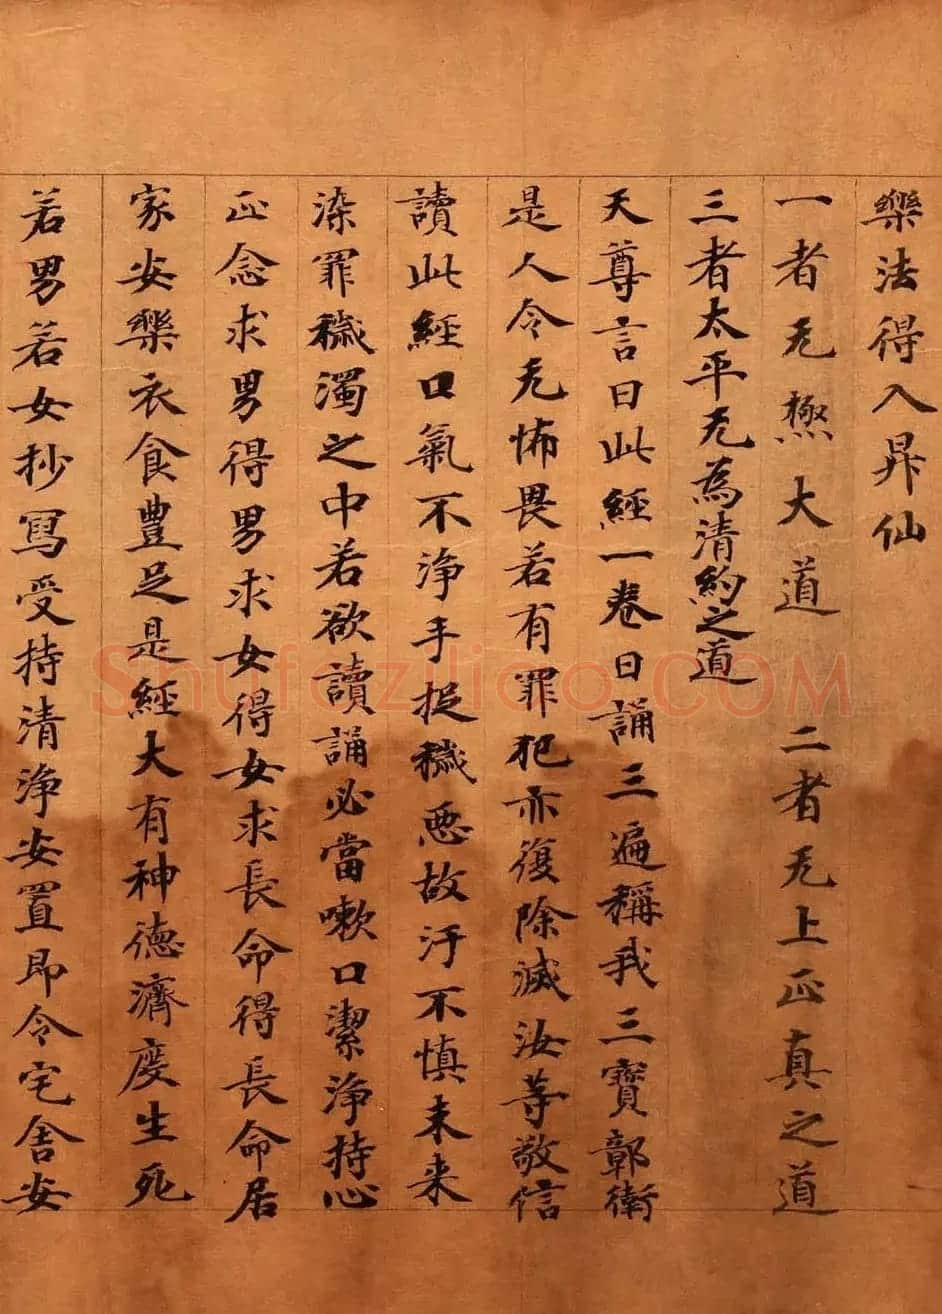 樂法得入昇仙
一者无㷱大道 二者无上正真之道
三者太平无為清約之道
天尊言曰此經一卷日誦三遍稱我三寶鄣衛
是人令无怖畏若有罪犯亦復除滅汝等敬信
讀此經口氣不淨手捉穢惡故汙不慎未来
染罪穢濁之中若欲讀誦必當嗽口潔淨持心
正念求男得男求女得女求長命得長命居
家安樂衣食豊足是經大有神德濟度生死
若男若女抄寫受持清淨安置即令宅舍安
Shufaziliao.COM